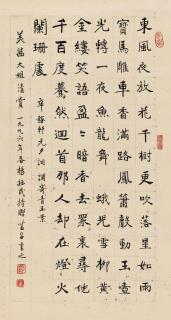 東風夜放花千樹更吹落星如雨
寶馬雕車香滿路鳳簫聲動玉壺
光轉一夜魚龍舞蛾兒雪柳黃
金縷笑語盈盈暗香去眾裏尋他
千百度驀然迴首那人却在燈火
闌珊處
辛稼軒元夕詞調寄青玉案
大姐清賞一九九六年